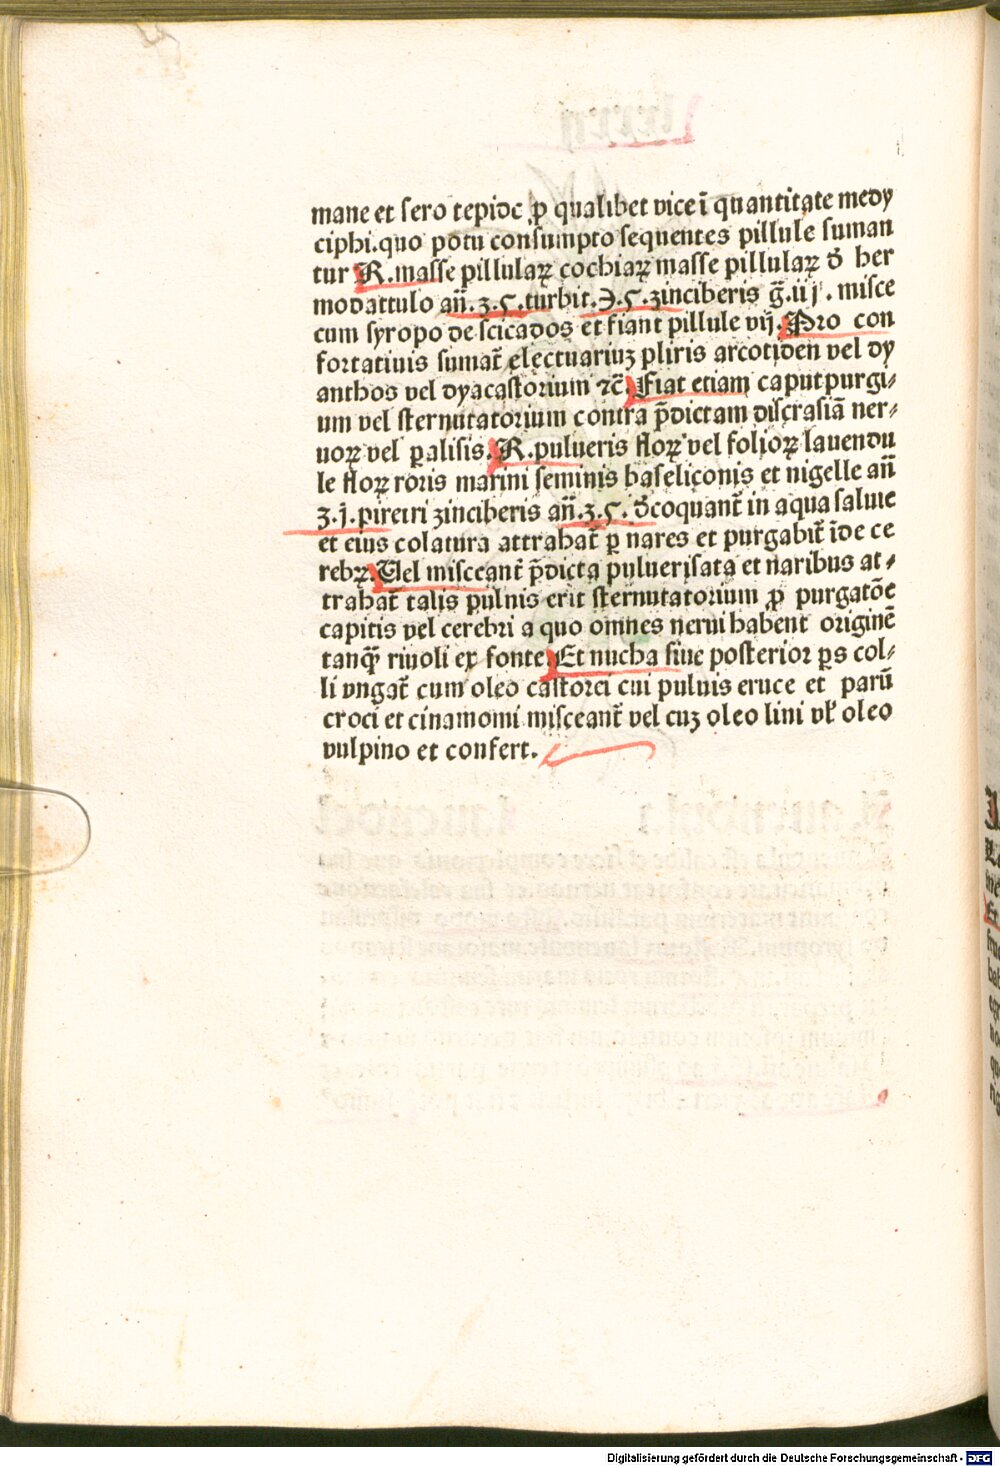 mane et sero tepide ꝓ qualibet vice ī quantitate medy
ciphi.quo potu consumpto sequentes pillule suman
tur R.masse pillulaꝝ cochiaꝝ masse pillulaꝝ đ her
modattulo añ.ʒ.ς.turbit.℈.ς.zinciberis g̃.iiȷ.misce
cum syropo de sticados et fiant pillule vij.Pro con
fortatiuis sumat̃ electuariuȝ pliris arcotiden vel dy
anthos vel dyacastorium ⁊c̃.Fiat etiam caput purgi⸗
um vel sternutatorium contra p̄dictam discrasiā ner⸗
uoꝝ vel ꝑalisis.R.pulueris floꝝ vel folioꝝ lauendu
le floꝝ roris marini seminis baseliconis et nigelle añ
ʒ.j.piretri zinciberis añ.ʒ.ς.đcoquant̃ in aqua saluie
et eius colatura attrahat̃ ꝑ nares et purgabit̃ īde ce
rebꝝ.Vel misceant̃ p̄dicta puluerisata et naribus at⸗
trahat̃ talis puluis erit sternutatorium ꝓ purgatōe
capitis vel cerebri a quo omnes nerui habent originē
tanqꝫ riuoli ex fonte.Et nucha siue posterior ꝑs col⸗
li vngat̃ cum oleo castorei cui puluis eruce et parū
croci et cinamomi misceant̃ vel cuȝ oleo lini vł oleo
vulpino et confert.
Digitalisierung gefördert durch die Deutsche Forschungsgemeinschaft - DFG